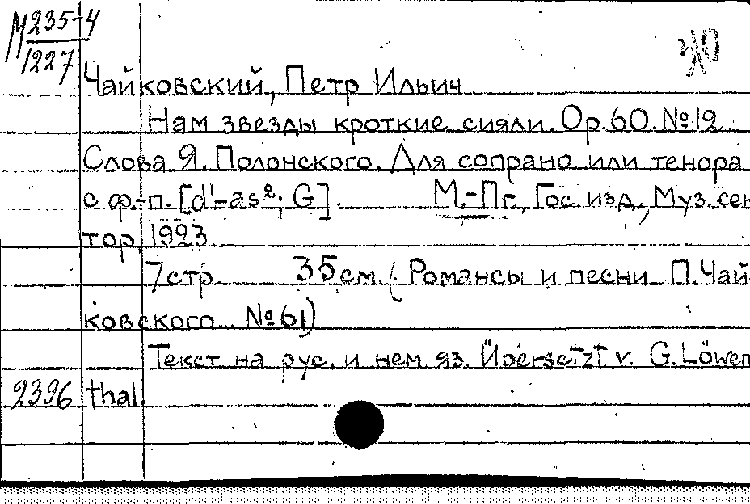 М 235-4
1227
Чайковский, Петр Ильич
Нам звезды кроткие сияли. Ор. 60. № 12
Слова Я. Полонского. Для сопрано или тенора
с ф.-п. [d¹-as²; G] М.-Пг., Гос. изд., Муз. сек-
тор, 1923.
7 стр. 35 см. (Романсы и песни П. Чай-
ковского. № 61)
Текст на рус. и нем. яз. Übersetzt v. G. Löwen-
2326 thal.